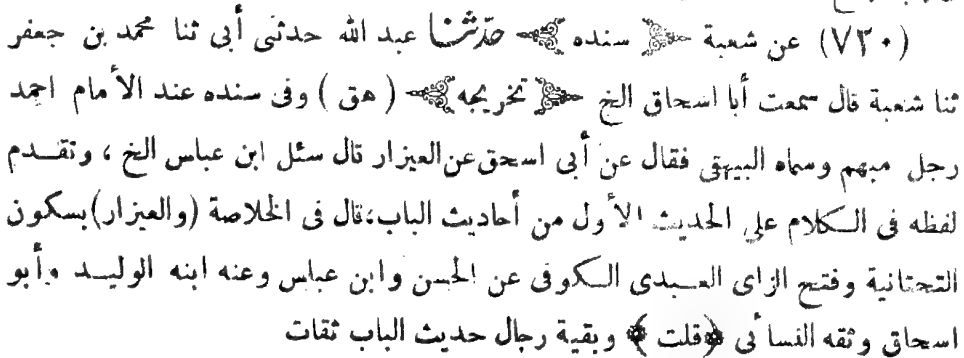 (٧٣٠) عن شعبة ﴿ سنده ﴾ حدثنا عبد الله حدثنى أبى ثنا محمد بن جعفر
ثنا شعبة قال سمعت أبا اسحاق الخ ﴿ تخريجه ﴾ ( هق ) وفى سنده عند الأمام احمد
رجل مبهم وسماه البيهقى فقال عن أبى اسحق عن العيزار قال سئل ابن عباس الخ ، وتقـدم
لفظه فى الـكلام على الحديث الأول من أحاديث الباب،قال فى الخلاصة (والعيزار)بسكون
التحتانية وفتح الزاى العـبدى الـكوفى عن الحسن وابن عباس وعنه ابنه الوليـد وأبو
اسحاق وثقه النسائى ﴿ قلت ﴾ وبقية رجال حديث الباب ثقات